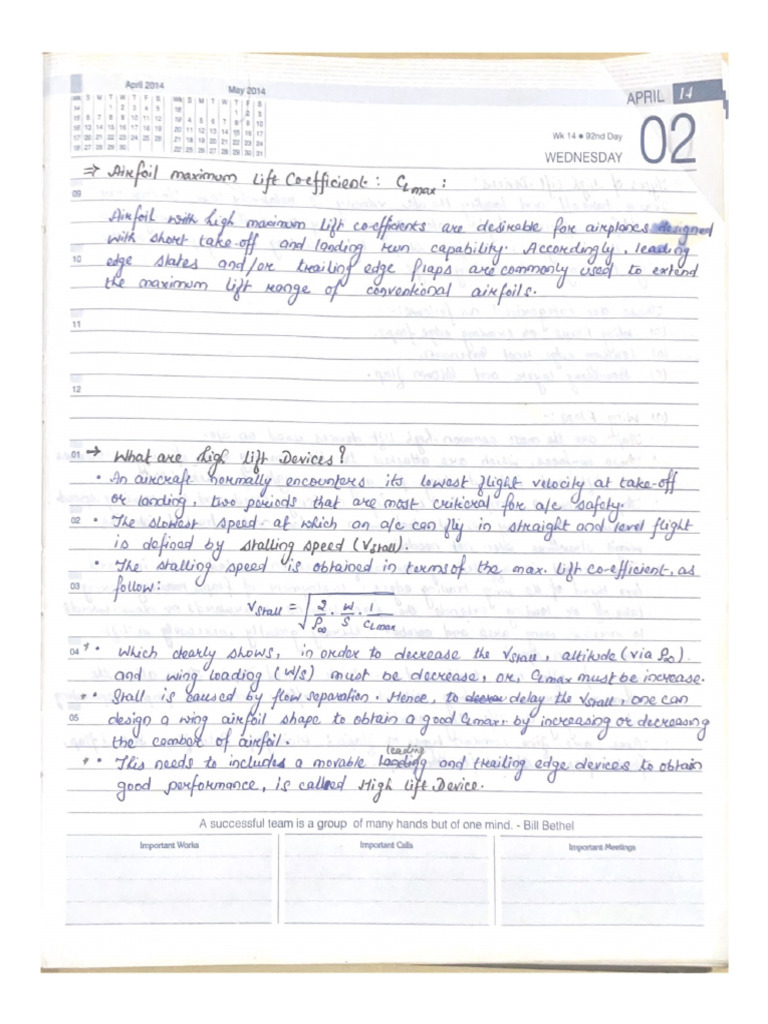 April 2014
May 2014
APRIL 14
02
Wk 14 • 92nd Day
WEDNESDAY
⇒ Airfoil maximum Lift Co-efficient : CLmax :
09
Airfoil with high maximum lift co-efficients are desirable for airplanes designed
with short take-off and landing run capability. Accordingly, leading
10
edge slates and/or trailing edge flaps are commonly used to extend
the maximum lift range of conventional airfoils.
11
12
01 → What are high lift Devices?
• An aircraft normally encounters its lowest flight velocity at take-off
or landing, two periods that are most criticral for a/c safety.
02 • The slowest speed at which an a/c can fly in straight and level flight
is defined by stalling speed (Vstall).
• The stalling speed is obtained in terms of the max. lift co-efficient, as
03
follow:
Vstall = √(2/ρ∞ · W/S · 1/CLmax)
04 * • Which clearly shows, in order to decrease the Vstall, altitude (via ρ∞)
and wing loading (W/S) must be decrease, or, CLmax must be increase.
• • Stall is caused by flow separation. Hence, to delay the Vstall, one can
05
design a wing airfoil shape to obtain a good CLmax, by increasing or decreasing
the camber of airfoil.
leading
* • This needs to includes a movable and trailing edge devices to obtain
good performance, is called High lift Device.
A successful team is a group of many hands but of one mind. - Bill Bethel
Important Works
Important Calls
Important Meetings